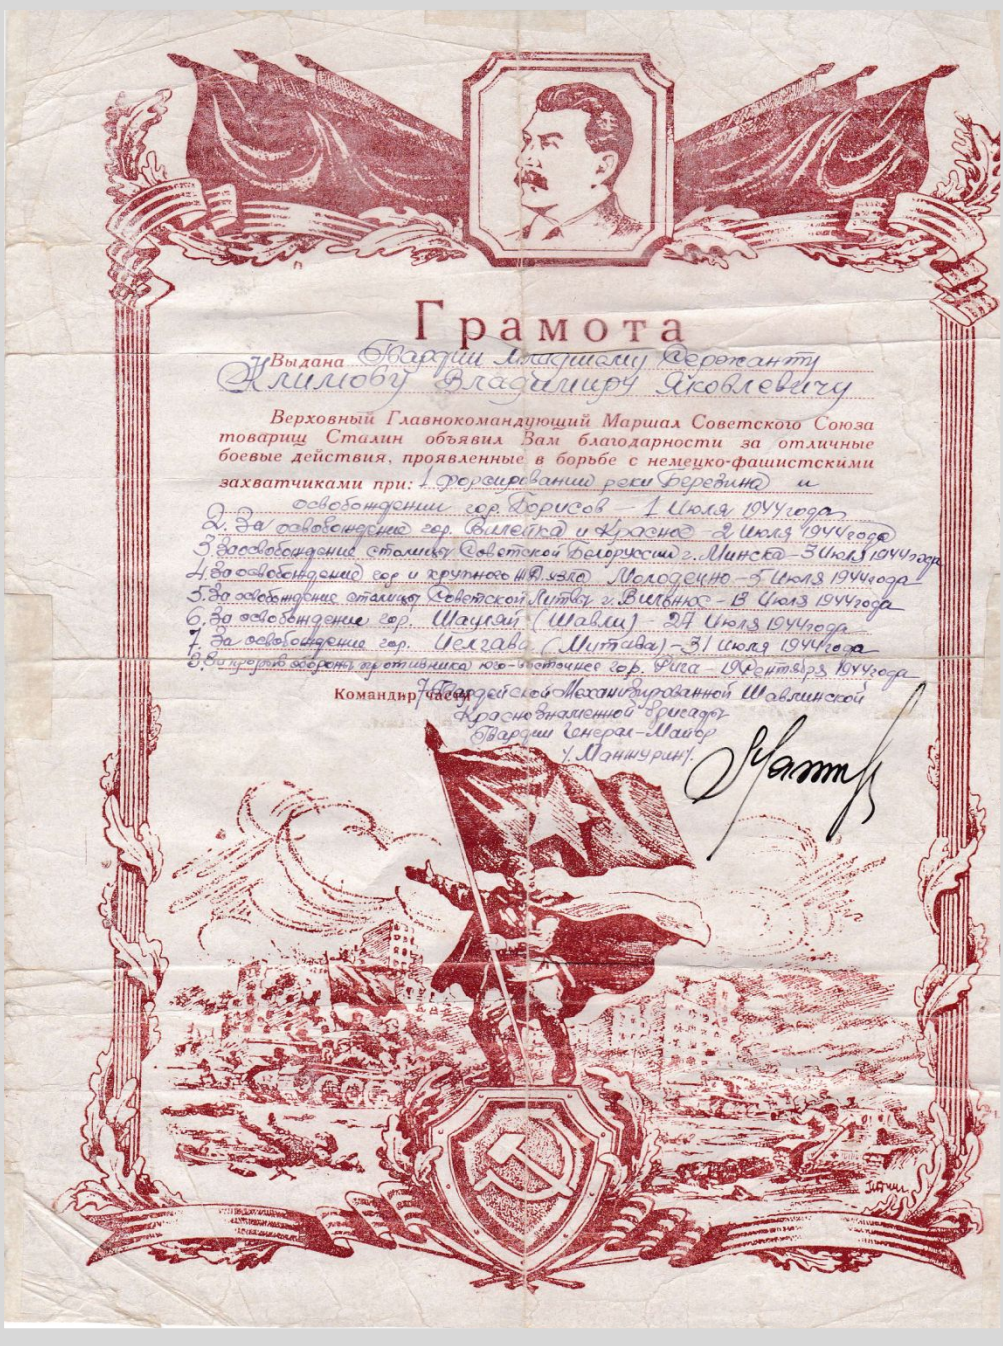 Грамота
Выдана Гвардии младшему Сержанту
Климову Владимиру Яковлевичу
Верховный Главнокомандующий Маршал Советского Союза
товарищ Сталин объявил Вам благодарности за отличные
боевые действия, проявленные в борьбе с немецко-фашистскими
захватчиками при: 1 форсировании реки Березина и
освобождении гор. Борисов – 1 Июля 1944 года
2. За освобождение гор. Вилейка и Красное – 2 Июля 1944 года
3. За освобождение столицы Советской Белоруссии г. Минска – 3 Июля 1944 года
4. За освобождение гор и крупного ЖД узла Молодечно – 5 Июля 1944 года
5. За освобождение столицы Советской Литвы г. Вильнюс – 13 Июля 1944 года
6. За освобождение гор. Шауляй (Шавли) – 27 Июля 1944 года
7. За освобождение гор. Иелгава (Митава) – 31 Июля 1944 года
прорыв обороны противника юго-восточнее гор. Рига – 19 Сентября 1944 года
Командир части 7 Гвардейской Механизированной Шавлинской
Краснознаменной бригады
Гвардии Генерал-Майор
/Манжурин/.